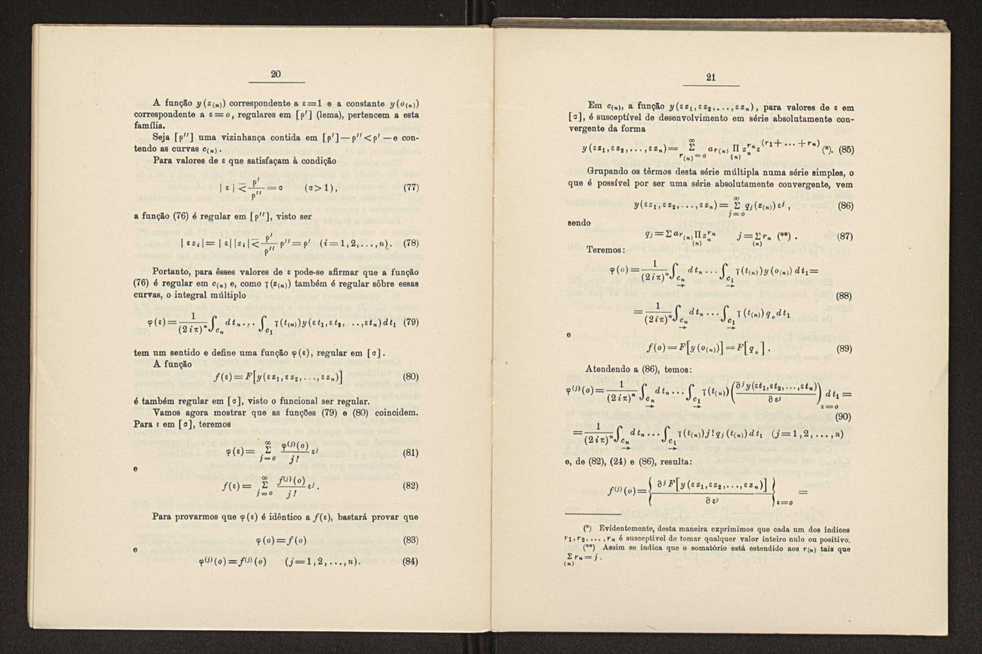 20
A função y(z₍ₙ₎) correspondente a ε=1 e a constante y(o₍ₙ₎)
correspondente a ε=o, regulares em [ρ′] (lema), pertencem a esta
família.
Seja [ρ′′] uma vizinhança contida em [ρ′]—ρ′′<ρ′—e con-
tendo as curvas c₍ₙ₎.
Para valores de ε que satisfaçam à condição
|ε| ⋜ ρ′/ρ′′ = σ (σ>1), (77)
a função (76) é regular em [ρ′′], visto ser
|εzᵢ|=|ε||zᵢ| ⋜ ρ′/ρ′′ ρ′′=ρ′ (i=1,2,...,n). (78)
Portanto, para êsses valores de ε pode-se afirmar que a função
(76) é regular em c₍ₙ₎ e, como γ(z₍ₙ₎) também é regular sôbre essas
curvas, o integral múltiplo
φ(ε)= 1/(2iπ)ⁿ ∫_{cₙ} dtₙ... ∫_{c₁} γ(t₍ₙ₎)y(εt₁,εt₂, ..,εtₙ)dt₁ (79)
tem um sentido e define uma função φ(ε), regular em [σ].
A função
f(ε)=F[y(εz₁,εz₂,...,εzₙ)] (80)
é também regular em [σ], visto o funcional ser regular.
Vamos agora mostrar que as funções (79) e (80) coincidem.
Para ε em [σ], teremos
φ(ε)= Σ_{j=o}^{∞} φ⁽ʲ⁾(o)/j! εʲ (81)
e
f(ε)= Σ_{j=o}^{∞} f⁽ʲ⁾(o)/j! εʲ. (82)
Para provarmos que φ(ε) é idêntico a f(ε), bastará provar que
φ(o)=f(o) (83)
e
φ⁽ʲ⁾(o)=f⁽ʲ⁾(o) (j=1,2,...,n). (84)
21
Em c₍ₙ₎, a função y(εz₁,εz₂,...,εzₙ), para valores de ε em
[σ], é susceptível de desenvolvimento em série absolutamente con-
vergente da forma
y(εz₁,εz₂,...,εzₙ)= Σ_{r₍ₙ₎=o}^{∞} a_{r(n)} Π_{(n)} zₙ^{rₙ} ε^{(r₁+...+rₙ)} (*). (85)
Grupando os têrmos desta série múltipla numa série simples, o
que é possível por ser uma série absolutamente convergente, vem
y(εz₁,εz₂,...,εzₙ)= Σ_{j=o}^{∞} qⱼ(z₍ₙ₎)εʲ, (86)
sendo
qⱼ=Σ a_{r(n)} Π_{(n)} zₙ^{rₙ} j=Σ_{(n)} rₙ (**). (87)
Teremos:
φ(o)= 1/(2iπ)ⁿ ∫_{cₙ} dtₙ... ∫_{c₁} γ(t₍ₙ₎)y(o₍ₙ₎)dt₁=
(88)
= 1/(2iπ)ⁿ ∫_{cₙ} dtₙ... ∫_{c₁} γ(t₍ₙ₎)qₒdt₁
e
f(o)=F[y(o₍ₙ₎)]=F[qₒ]. (89)
Atendendo a (86), temos:
φ⁽ʲ⁾(o)= 1/(2iπ)ⁿ ∫_{cₙ} dtₙ... ∫_{c₁} γ(t₍ₙ₎)(∂ʲy(εt₁,εt₂,...,εtₙ)/∂εʲ)_{ε=o} dt₁=
(90)
= 1/(2iπ)ⁿ ∫_{cₙ} dtₙ... ∫_{c₁} γ(t₍ₙ₎)j!qⱼ(t₍ₙ₎)dt₁ (j=1,2,...,n)
e, de (82), (24) e (86), resulta:
f⁽ʲ⁾(o)={∂ʲF[y(εz₁,εz₂,...,εzₙ)]/∂εʲ}_{ε=o} =
(*) Evidentemente, desta maneira exprimimos que cada um dos índices
r₁,r₂,...,rₙ é susceptível de tomar qualquer valor inteiro nulo ou positivo.
(**) Assim se indica que o somatório está estendido aos r₍ₙ₎ tais que
Σ_{(n)} rₙ=j.